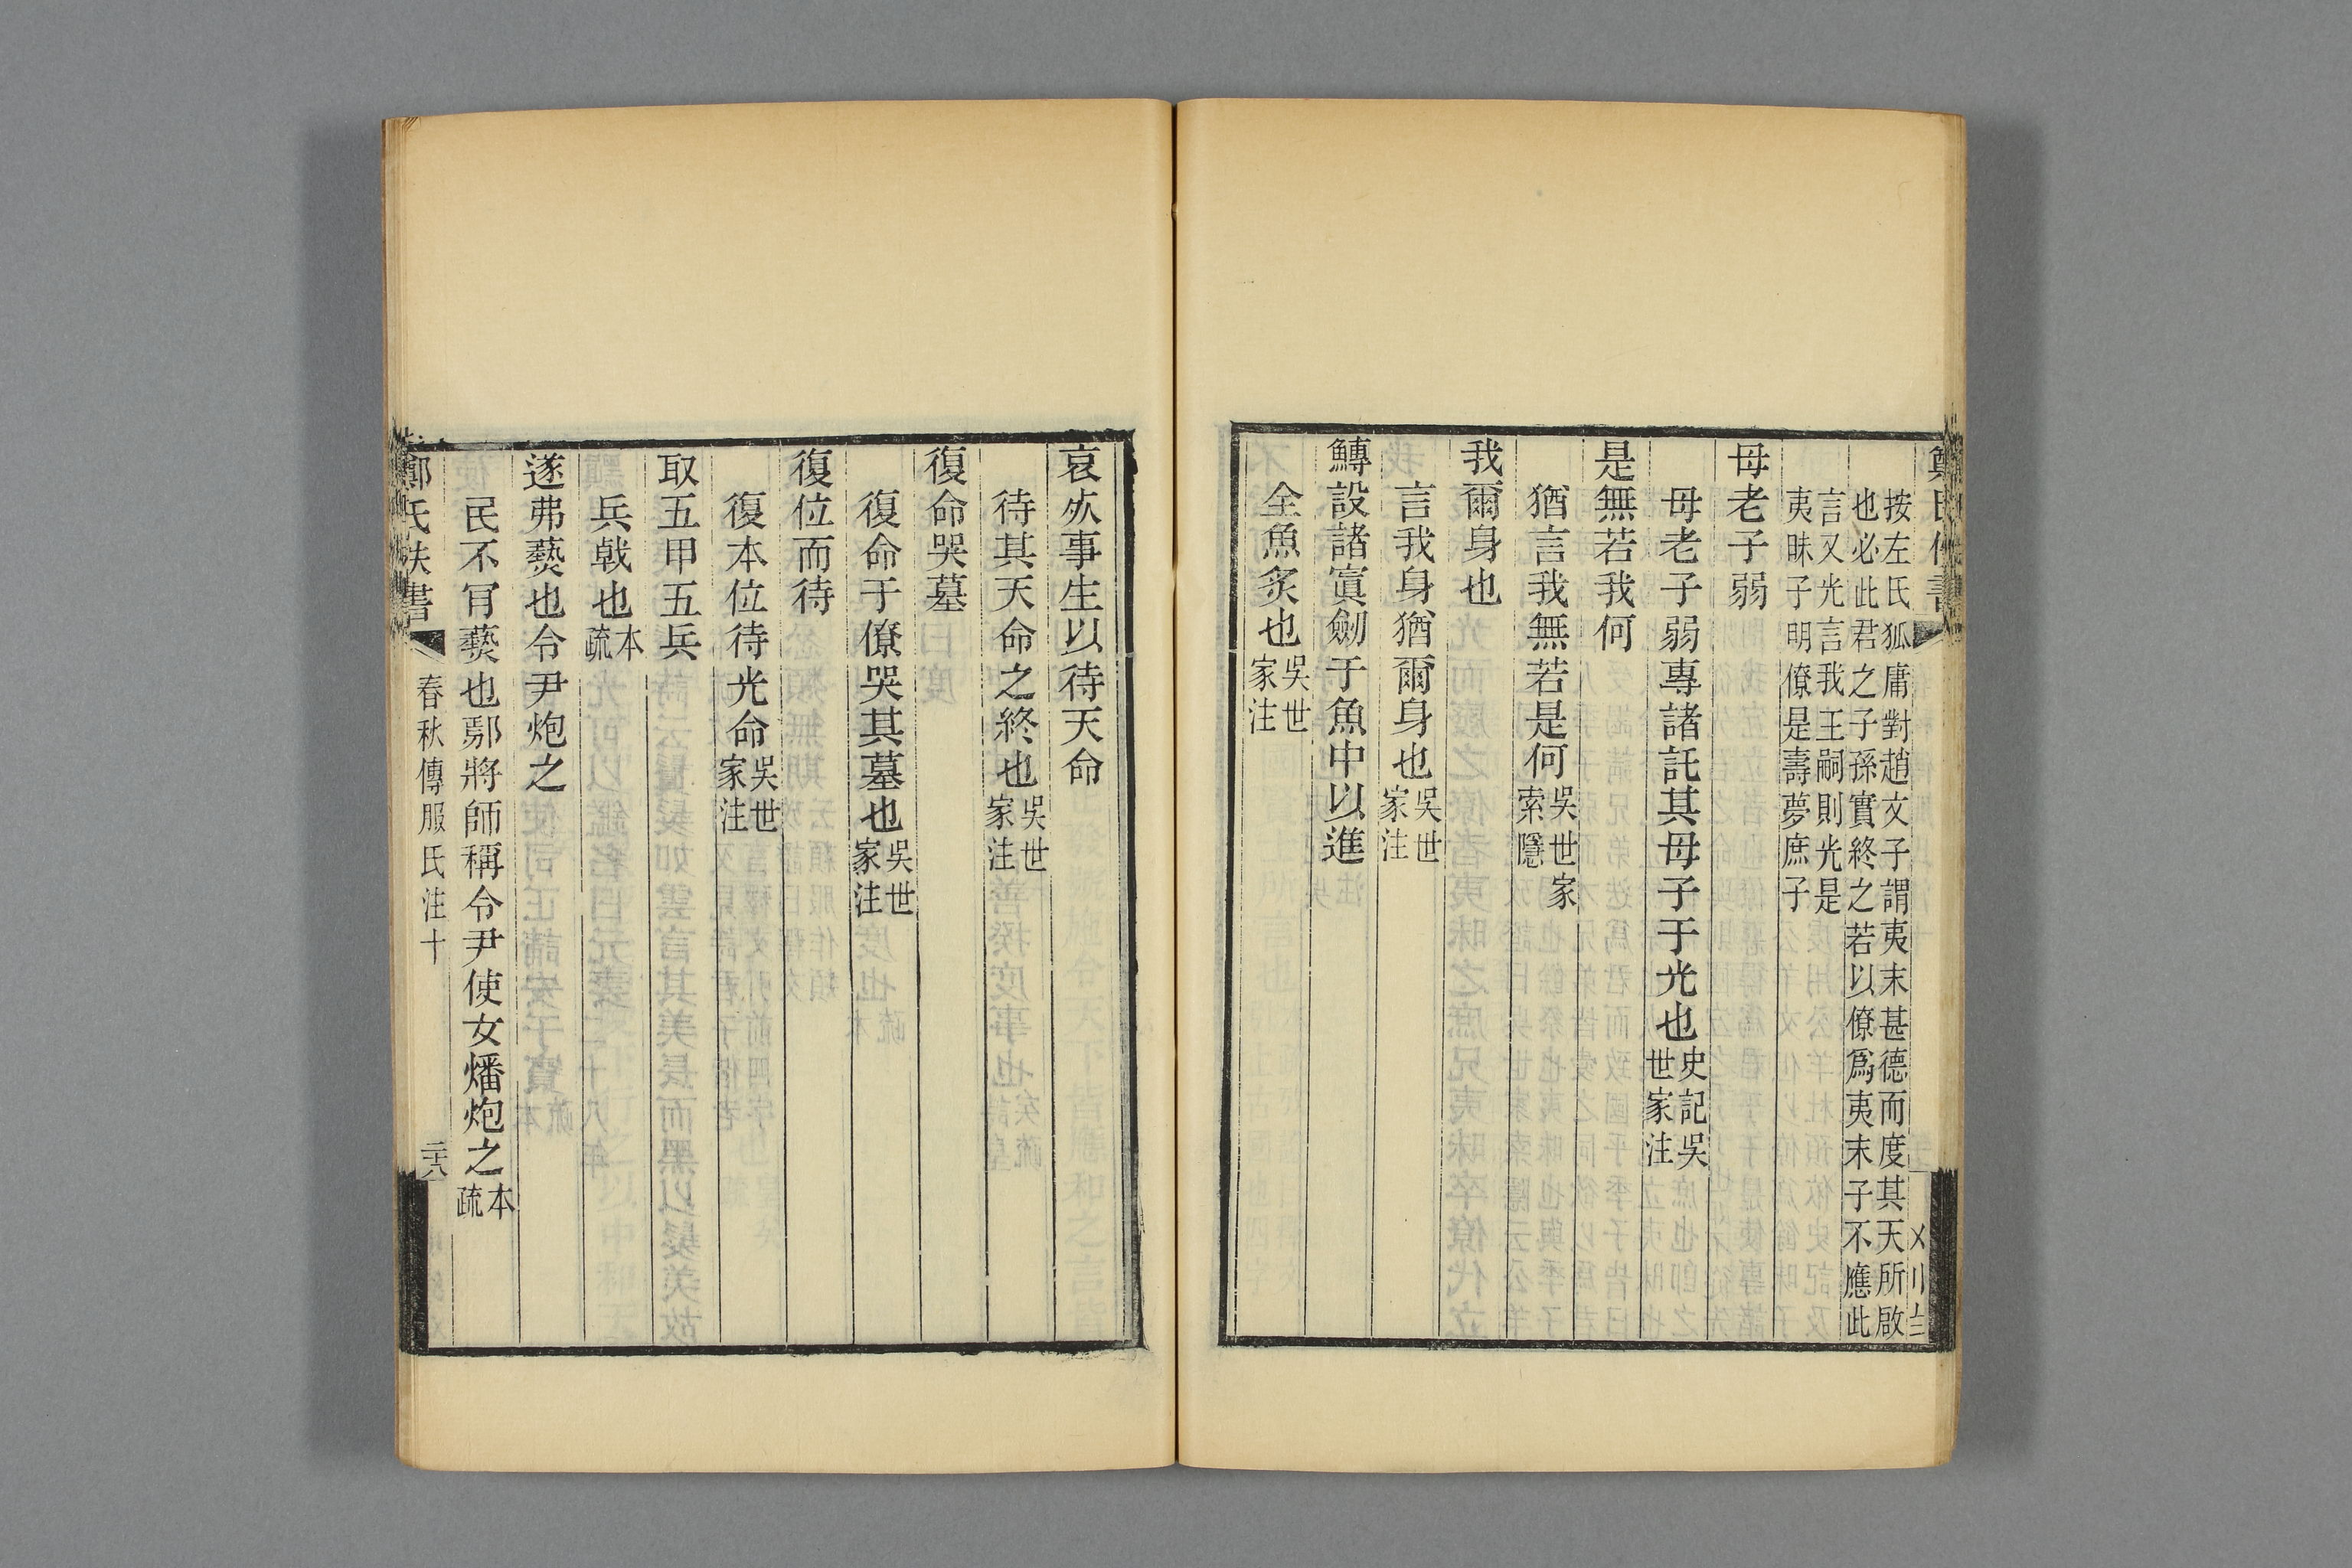 按左氏狐庸對趙文子謂夷末甚德而度其天所啟
也必此君之子孫實終之若以僚爲夷末子不應此
言又光言我王嗣則光是
夷昧子明僚是壽夢庶子
母老子弱
母老子弱專諸託其母子于光也史記吳
世家注
是無若我何
猶言我無若是何吳世家
索隱
我爾身也
言我身猶爾身也吳世
家注
鱄設諸寘劒于魚中以進
全魚炙也吳世
家注
哀𣦸事生以待天命
待其天命之終也吳世
家注
復命哭墓
復命于僚哭其墓也吳世
家注
復位而待
復本位待光命吳世
家注
取五甲五兵
兵戟也本
疏
遂弗爇也令尹炮之
民不肎爇也鄢將師稱令尹使女燔炮之本
疏
鄭氏佚書
春秋傳服氏注十
二十八